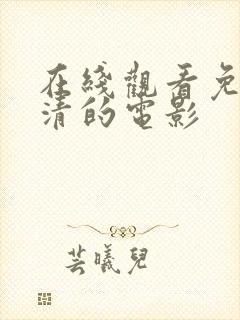 在綫觀看免
清的電影
芸曦兒